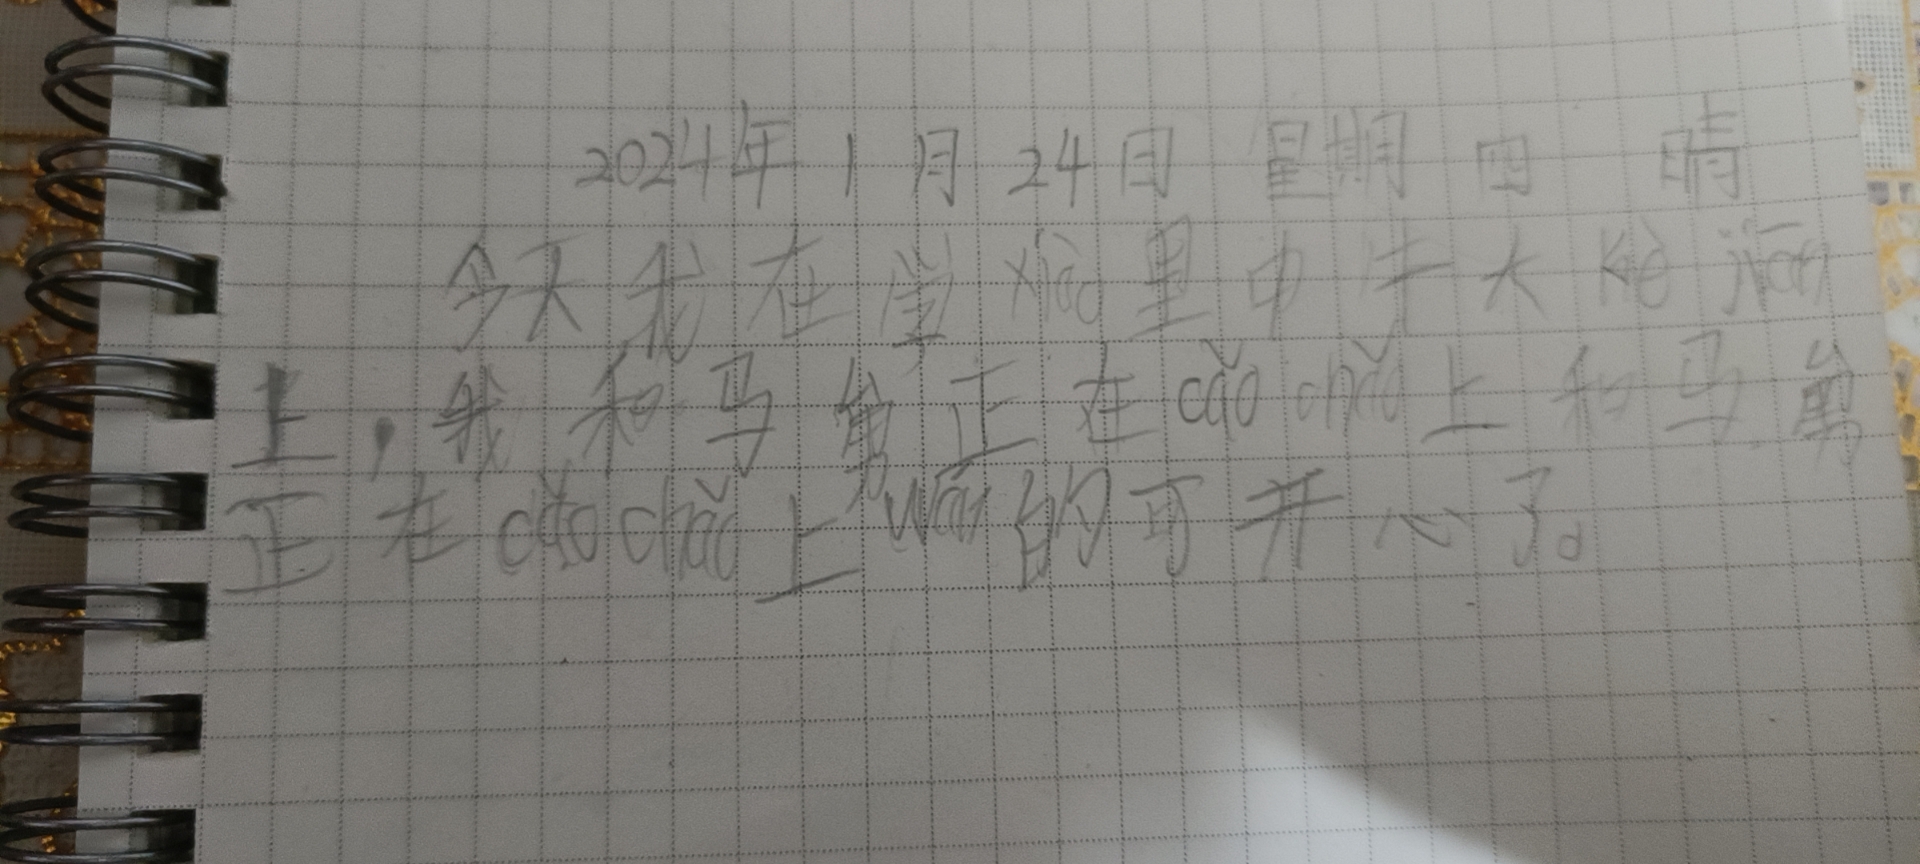 2024年1月24日 星期四 晴
今天我在学xiào里中午大kè jiān
上，我和马禹正在cǎo chǎo上和马禹
正在cǎo chǎo上wán的可开心了。